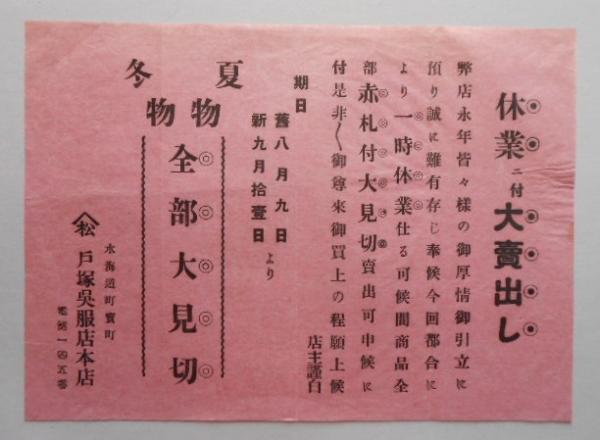 休業ニ付大賣出し
弊店永年皆々様の御厚情御引立に
預り誠に難有存じ奉候今回都合に
より一時休業仕る可候間商品全
部赤札付大見切賣出可申候に
付是非〳〵御尊来御買上の程願上候
店主謹白
期日
舊八月九日
新九月拾壹日より
夏物
冬物
全部大見切
松
水海道町寳町
戸塚呉服店本店
電話一四五番